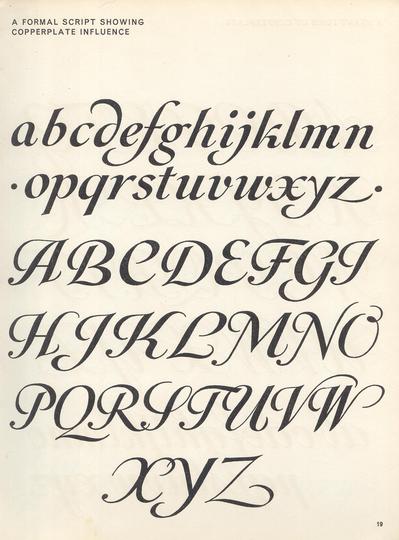 A FORMAL SCRIPT SHOWING
COPPERPLATE INFLUENCE
abcdefghijklmn
·opqrstuvwxyz·
ABCDEFGI
HJKLMNO
PQRSTUVW
XYZ
19